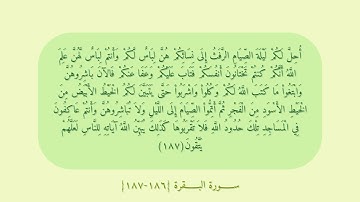 أُحِلَّ لَكُمْ لَيْلَةَ الصِّيَامِ الرَّفَثُ إِلَى نِسَائِكُمْ هُنَّ لِبَاسٌ لَكُمْ وَأَنتُمْ لِبَاسٌ لَّهُنَّ عَلِمَ
اللَّهُ أَنَّكُمْ كُنتُمْ تَخْتَانُونَ أَنفُسَكُمْ فَتَابَ عَلَيْكُمْ وَعَفَا عَنكُمْ فَالآنَ بَاشِرُوهُنَّ
وَابْتَغُوا مَا كَتَبَ اللَّهُ لَكُمْ وَكُلُوا وَاشْرَبُوا حَتَّى يَتَبَيَّنَ لَكُمُ الْخَيْطُ الأَبْيَضُ مِنَ
الْخَيْطِ الأَسْوَدِ مِنَ الْفَجْرِ ثُمَّ أَتِمُّوا الصِّيَامَ إِلَى اللَّيْلِ وَلَا تُبَاشِرُوهُنَّ وَأَنتُمْ عَاكِفُونَ
فِي الْمَسَاجِدِ تِلْكَ حُدُودُ اللَّهِ فَلَا تَقْرَبُوهَا كَذَلِكَ يُبَيِّنُ اللَّهُ آيَاتِهِ لِلنَّاسِ لَعَلَّهُمْ
يَتَّقُونَ (١٨٧)
سـورة البـقـرة |١٨٦-١٨٧|